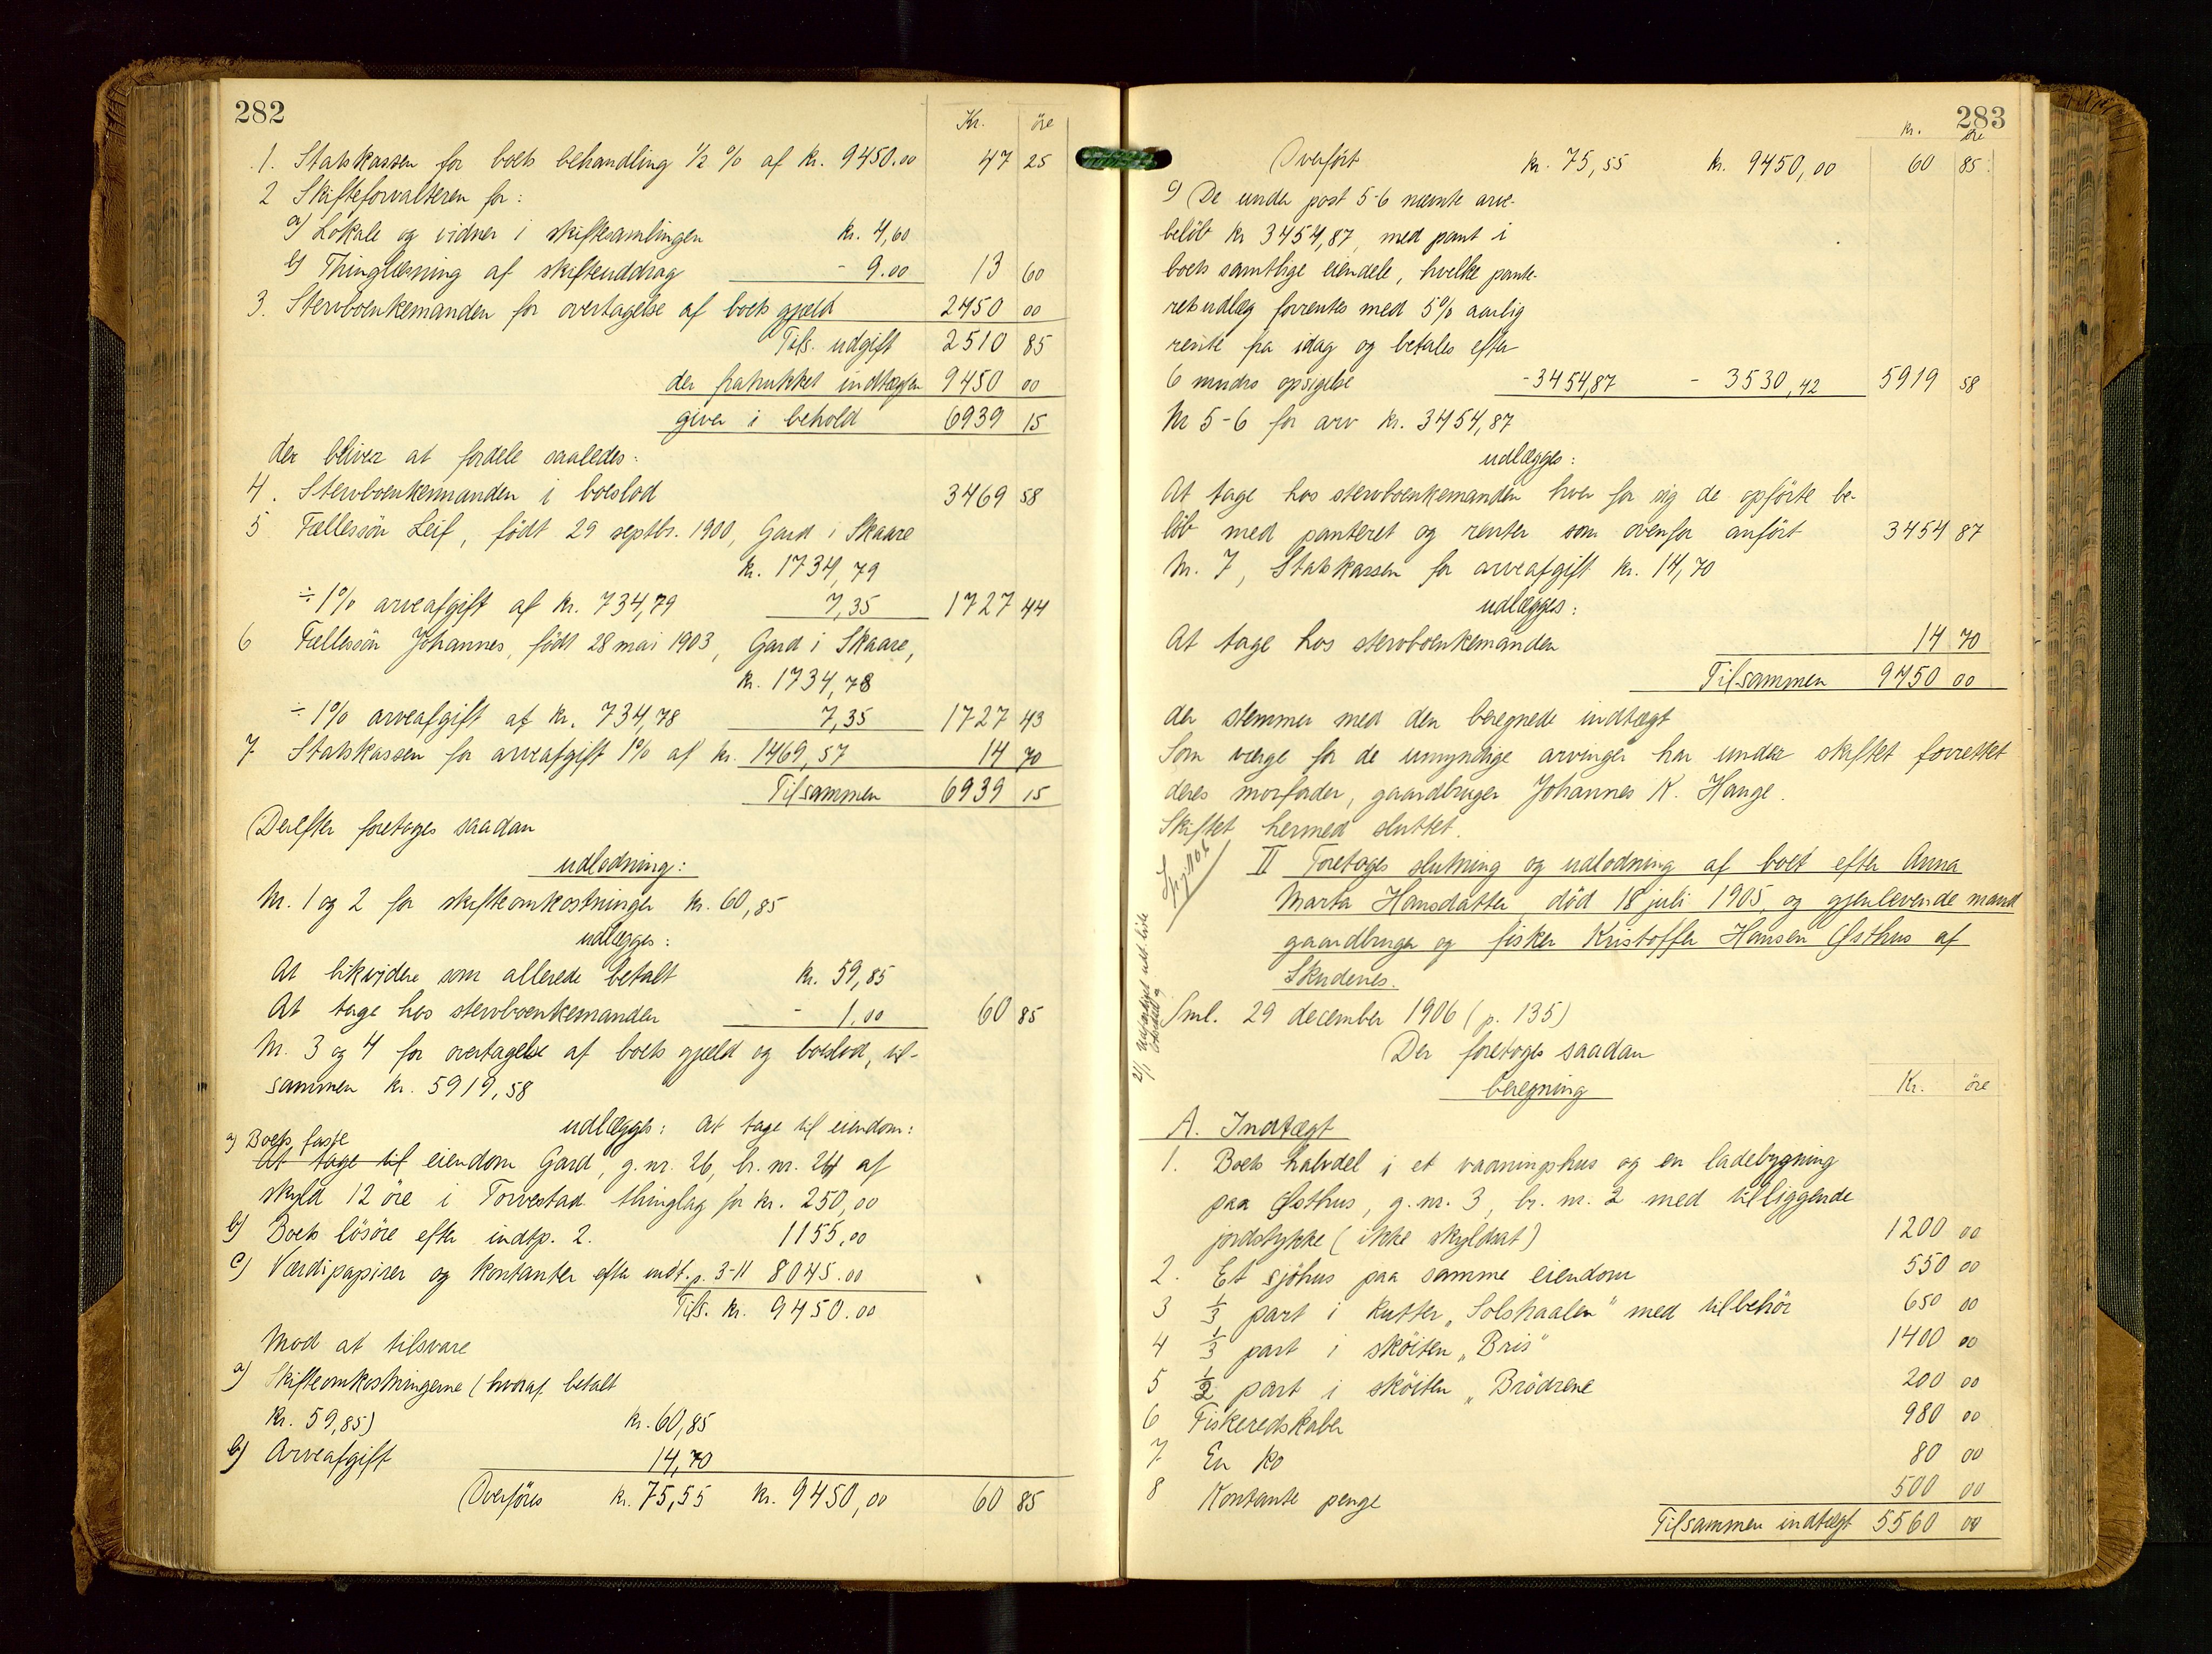 282
Kr. öre
1. Statskassen for boets behandling ½ % af kr. 9450.00 47 25
2 Skifteforvalteren for:
a) Lokale og vidner i skiftesamlingen kr. 4,60
b) Thinglæsning af skifteuddrag - 9.00 13 60
3. Stervboenkemanden for overtagelse af boets gjæld 2450 00
Tils. udgift 2510 85
der fratrukket indtægten 9450 00
giver i behold 6939 15
der bliver at fordele saaledes:
4. Stervboenkemanden i boeslod 3469 58
5 Fællessön Leif, födt 29 septbr. 1900, Gard i Skaare
kr. 1734,79
÷ 1% arveafgift af kr. 734,79 7,35 1727 44
6 Fællessön Johannes, födt 28 mai 1903, Gard i Skaare,
kr. 1734,78
÷ 1% arveafgift af kr. 734,78 7,35 1727 43
7 Statskassen for arveafgift 1% af kr. 1469,57 14 70
Tilsammen 6939 15
Derefter foretoges saadan
udlodning:
Nr. 1 og 2 for skifteomkostninger kr. 60,85
udlægges:
At likvidere som allerede betalt kr. 59,85
At tage hos stervboenkemanden - 1,00 60 85
Nr. 3 og 4 for overtagelse af boets gjæld og boeslod, til-
sammen kr. 5919,58
udlægges: At tage til eiendom:
a) Boets faste
At tage til eiendom Gard, g.nr. 26, br. nr. 24 af
skyld 12 öre i Torvestad thinglag for kr. 250,00
b) Boets lösöre efter indtp. 2. 1155,00
c) Værdipapirer og kontanter efter indt. p. 3-11 8045.00
Tils. kr. 9450.00
Mod at tilsvare
a) Skifteomkostningerne (hvoraf betalt
kr. 59,85) kr. 60,85
b) Arveafgift 14,70
Overföres kr. 75,55 kr. 9450,00 60 85
283
kr. öre
Overfört kr. 75,55 kr. 9450,00 60 85
c) De under post 5-6 nævnte arve-
belöb kr 3454,87, med pant i
boets samtlige eiendele, hvilke pante-
retsudlæg forrentes med 5% aarlig
rente fra idag og betales efter
6 mndrs opsigelse - 3454,87 - 3530,42 5919 58
Nr 5-6 for arv kr. 3454,87
udlægges:
At tage hos stervboenkemanden hver for sig de opförte be-
löb med panteret og renter som ovenfor anfört 3454 87
Nr. 7, Statskassen for arveafgift kr. 14,70
udlægges:
At tage hos stervboenkemanden 14 70
Tilsammen 9450 00
der stemmer med den beregnede indtægt
Som værge for de umyndige arvinger har under skiftet forrettet
deres morfader, gaardbruger Johannes K. Hauge.
Skiftet hermed sluttet.
II Foretoges slutning og udlodning af boet efter Anna
Marta Hansdatter död 18 juli 1905, og gjenlevende mand
gaardbruger og fisker Kristoffer Hansen Østhus af
Skudenes.
Sml. 29 december 1906 (p. 135)
Der foretoges saadan
beregning
Kr. öre
A. Indtægt
1. Boets halvdel i et vaaningshus og en ladebygning
paa Østhus, g.nr. 3, br. nr. 2 med tilliggende
jordstykke (ikke skyldsat) 1200 00
2. Et sjöhus paa samme eiendom 550 00
3 ⅓ part i kutter „Solstraalen" med tilbehör 650 00
4 ⅓ part i sköiten „Bris" 1400 00
5 ½ part i sköiten „Brödrene 200 00
6 Fiskeredskaber 980 00
7 En ko 80 00
8 Kontante penge 500 00
Tilsammen indtægt 5560 00